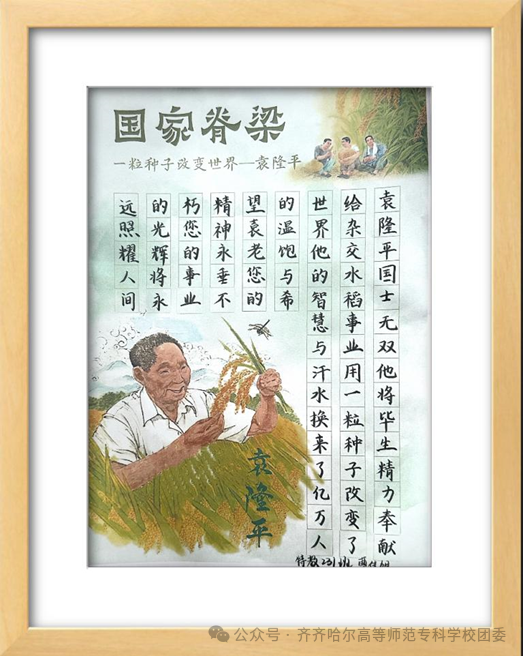 国家脊梁
一粒种子改变世界—袁隆平
袁隆平国士无双他将毕生精力奉献
给杂交水稻事业用一粒种子改变了
世界他的智慧与汗水换来了亿万人
的温饱与希
望袁老您的
精神永垂不
朽您的事业
的光辉将永
远照耀人间
袁隆平
特教231班
公众号·齐齐哈尔高等师范专科学校团委